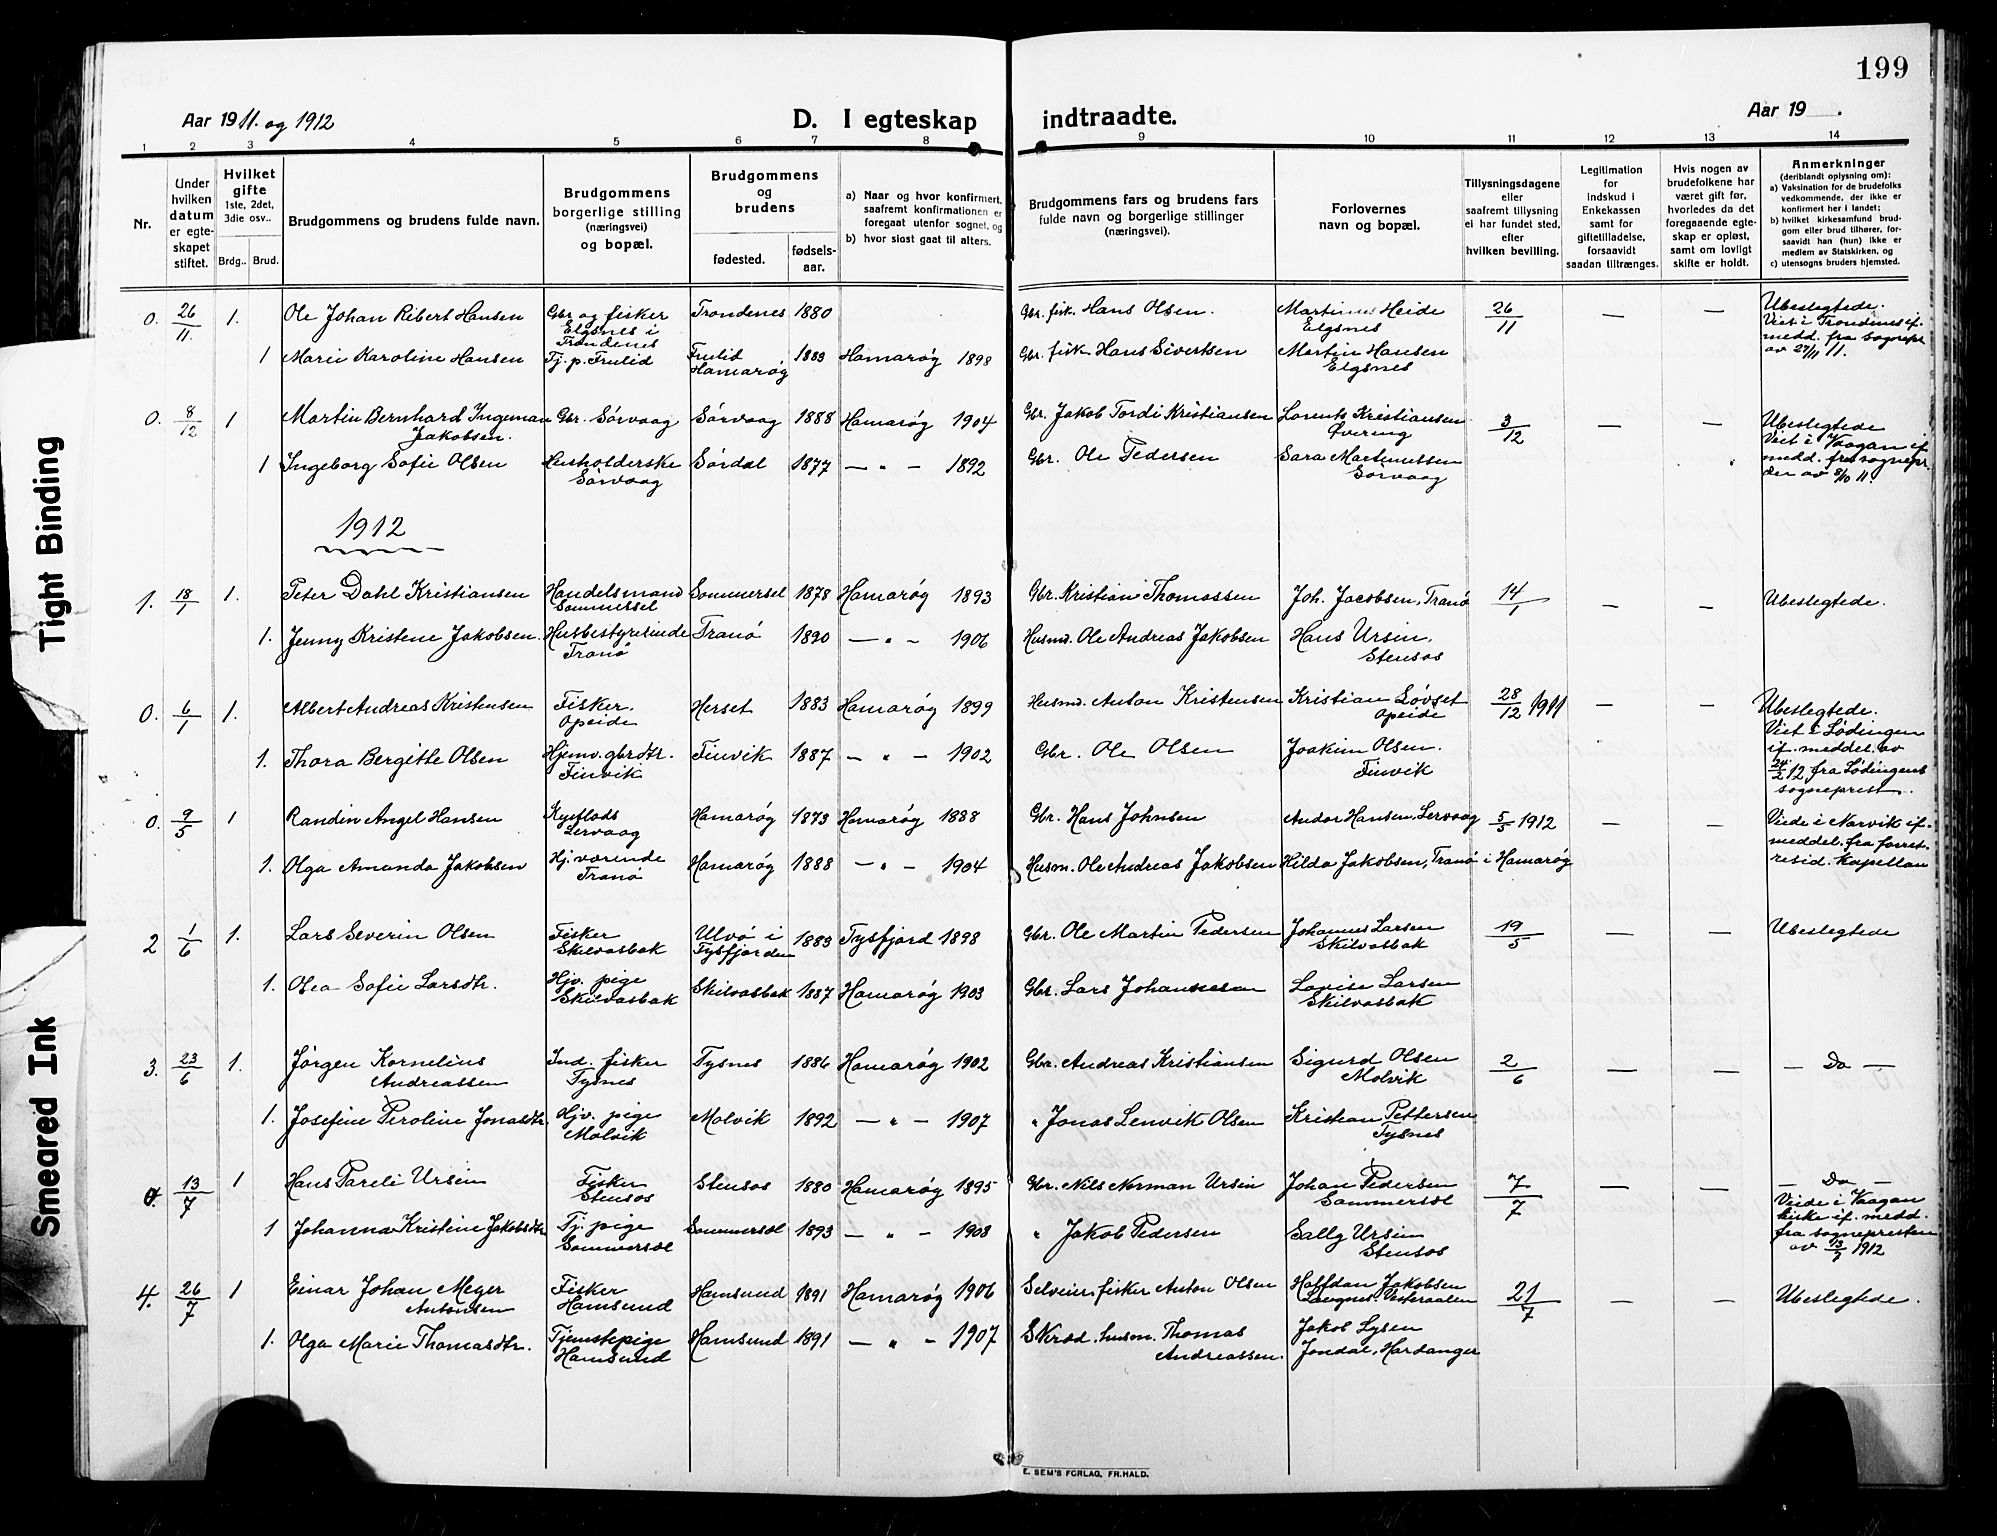 199
Aar 1911. og 1912
D. I egteskap indtraadte.
Aar 19 .
1 2 3 4 5 6 7 8 9 10 11 12 13 14
Nr.
Under hvilken datum er egte-skapet stiftet.
Hvilket gifte 1ste, 2det, 3die osv..
Brdg.. Brud.
Brudgommens og brudens fulde navn.
Brudgommens borgerlige stilling (næringsvei) og bopæl.
Brudgommens og brudens
fødested. fødsels-aar.
a) Naar og hvor konfirmert, saafremt konfirmationen er foregaat utenfor sognet, og
b) hvor sidst gaat til alters.
Brudgommens fars og brudens fars fulde navn og borgerlige stillinger (næringsvei).
Forlovernes navn og bopæl.
Tillysningsdagene eller saafremt tillysning ei har fundet sted, efter hvilken bevilling.
Legitimation for Indskud i Enkekassen samt for giftetilladelse, forsaavidt saadan tiltrænges.
Hvis nogen av brudefolkene har været gift før, hvorledes da det foregaaende egte-skap er opløst, samt om lovligt skifte er holdt.
Anmerkninger (deriblandt oplysning om):
a) Vaksination for de brudefolks vedkommende, der ikke er konfirmert her i landet;
b) hvilket kirkesamfund brud-gom eller brud tilhører, for-saavidt han (hun) ikke er medlem av Statskirken, og
c) utensogns bruders hjemsted.
0. 26/11. 1. Ole Johan Ribert Hansen Gbr og fisker Elgsnes i Trondenes Trondenes 1880 Gbr. fisk. Hans Olsen. Martinus Heide Elgsnes 26/11 — — Ubeslegtede. Viet i Trondenes if. medd. fra sognepr. av 27/11 11.
1 Marie Karoline Hansen Tj. p. Frulid Frulid Hamarøy 1883 Hamarøy 1898 Gbr. fisk Hans Sivertsen Martin Hansen Elgsnes
0. 8/12 1 Martin Bernhard Ingeman Jakobsen. Gbr. Sørvaag Sørvaag 1888 Hamarøy 1904 Gbr. Jakob Tordi Kristiansen Lorents Kristiansen Øvering 3/12 — — Ubeslegtede Viet i Vaagan if. medd. fra sognepr. der av 8/10 11.
1 Ingeborg Sofie Olsen Husholderske Sørvaag Sørdal 1877 — " — 1892 Gbr. Ole Pedersen Sara Martinussen Sørvaag
1912
1. 18/1 1. Peter Dahl Kristiansen Handelsmand Sommersel Sommersel 1878 Hamarøy 1893 Gbr. Kristian Thomassen Joh. Jacobsen, Tranø 14/1 — — Ubeslegtede.
1. Jenny Kristene Jakobsen Husbestyrerinde Tranø Tranø 1890 — " — 1906 Husmd. Ole Andreas Jakobsen Hans Ursin, Stensos
0. 6/1 1. Albert Andreas Kristensen Fisker. Opeide Herset 1883 Hamarøy 1899 Husmd. Anton Kristensen Kristian Løvset Opeide 28/12 1911 — — Ubeslegtede. Viet i Lødingen if. meddel. av 24/2 12 fra Lødingens sogneprest.
1. Thora Bergitte Olsen Hjemv. gbrdtr. Finvik Finvik 1887 — " — 1902 Gbr. Ole Olsen Joakim Olsen. Finvik
0. 9/5 1 Randin Angel Hansen Lervaag Hamarøy 1873 Hamarøy 1888 Gbr. Hans Johnsen Andor Hansen, Lervaag 5/5 1912 — — Viede i Narvik if. meddel. fra forret. resid. Kapellan
1. Olga Amanda Jakobsen Hj. værende Tranø Hamarøy 1888 — " — 1904 Husm. Ole Andreas Jakobsen Hilda Jakobsen, Tranø i Hamarøy
2 1/6 1. Lars Severin Olsen Fisker Skilvasbak Ulvø i Tysfjorden 1883 Tysfjord 1898 Gbr. Ole Martin Pedersen Johannes Larsen Skilvasbak 19/5 — — Ubeslegtede
1. Olea Sofie Larsdtr. Hjv. pige Skilvasbak Skilvasbak 1887 Hamarøy 1903 Gbr. Lars Johannesen Lovise Larsen Skilvasbak
3. 23/6 1. Jørgen Kornelius Andreassen Ind. fisker Tysnes Tysnes 1886 Hamarøy 1902 Gbr. Andreas Kristiansen Sigurd Olsen Molvik 2/6 — — — Do —
1. Josefine Peroline Jonasdtr. Hjv. pige Molvik Molvik 1892 — " — 1907 " Jonas Lenvik Olsen Kristian Pettersen Tysnes
0. 13/7 1 Hans Pareli Ursin Fisker Stensos Stensos 1880 Hamarøy 1895 Gbr. Nils Norman Ursin Johan Pedersen Sommersel 7/7 — — — Do — Viede i Vaagan kirke if. medd. fra sognepresten av 13/7 1912
1 Johanna Kristine Jakobsdtr Tj. pige Sommersel Sommersel 1893 — " — 1908 " Jakob Pedersen Sally Ursin Stensos
4. 26/7 1 Einar Johan Meyer Antonsen Fisker Hamsund Hamsund 1891 Hamarøy 1906 Selveier, fisker Anton Olsen Halfdan Jakobsen Langnes. Vesteraalen 21/7 — — Ubeslegtede.
1. Olga Marie Thomasdtr. Tjenestepige Hamsund Hamsund 1891 — " — 1907 Skræd. husm. Thomas Andreassen. Jakob Lysen Jondal, Hardanger
E. SEM'S FORLAG, FR.HALD.
Tight Binding
Smeared Ink